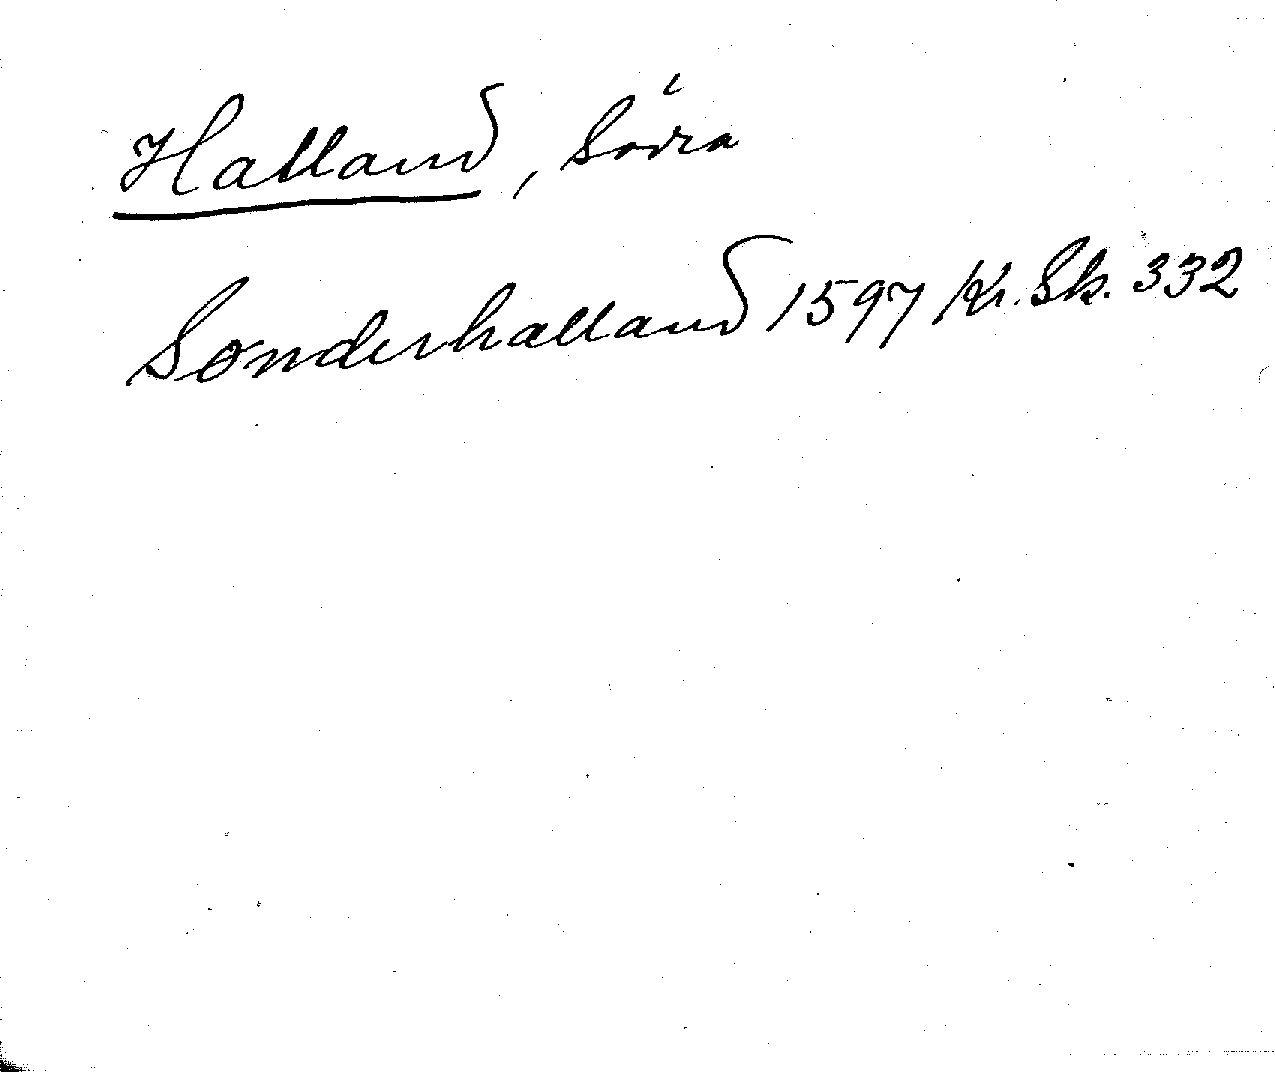 Halland, Södra
Sønderhalland 1597 Kr. Sk. 332